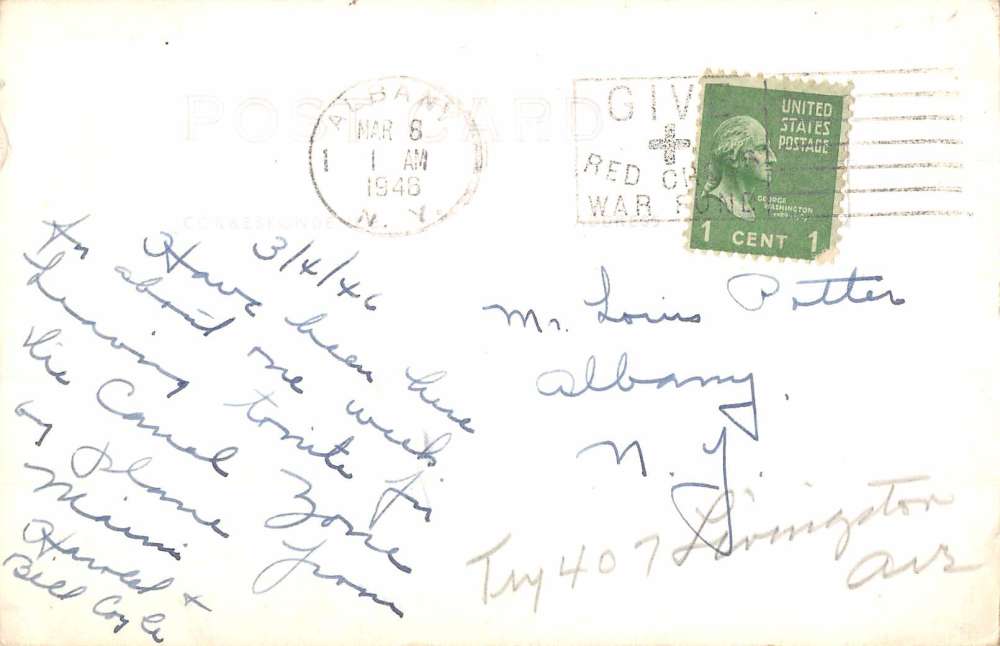 POST CARD
ALBANY
MAR 8
1 1 AM
1946
N. Y.
GIVE
RED CROSS
WAR FUND
UNITED
STATES
POSTAGE
GEORGE
WASHINGTON
1 CENT 1
CORRESPONDE
ADDRESS
3/4/46
Have been here
for about one week
Leaving tonite for
the Canal Zone
by plane from
Miami
Harold &
Bill Coyle
Mr. Louis Potter
Albany,
N. Y.
Try 407 Livingston
Ave